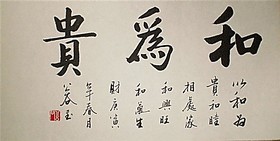 和爲貴
以和為
貴和睦
相處家
和興旺
和氣生
財庚寅
年春月